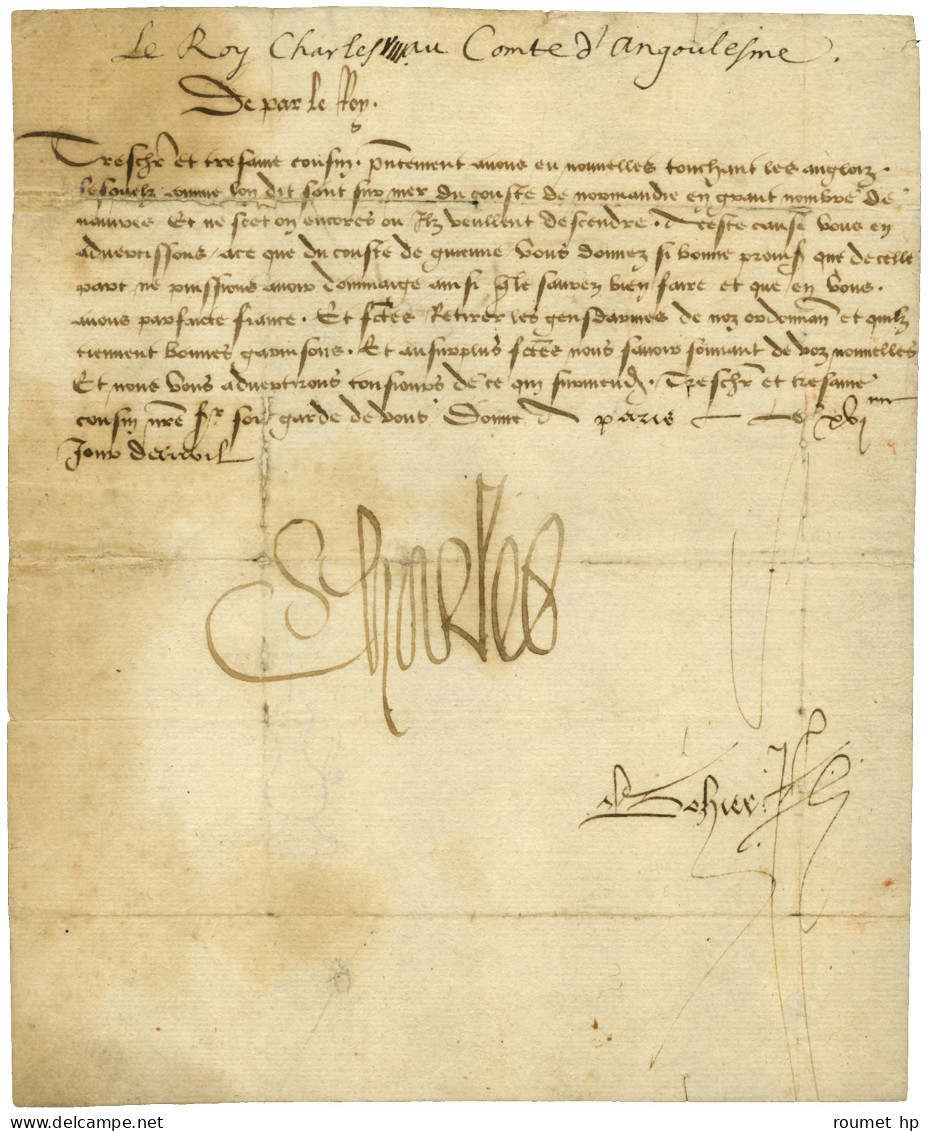 Le Roy Charles VIII au Comte d'Angoulesme.
De par le Roy.
Treschr et tresame cousin. pntement avons eu nouvelles touchant les anglois.
lesquelz comme lon dit sont sur mer du couste de normandie en grant nombre de
navires Et ne scet on encores ou Ilz veullent descendre. A ceste cause vous en
advertissons / ace que du couste de guienne vous donnez si bonne prouis que de celle
part ne puissions avoir dommaige ainsi q le saurez bien faire et que en vous.
avons parfaicte fiance. Et fctes Retirer les gensdarmes de noz ordonnan et quilz
tiennent bonnes garnisons. Et ausurplus fctes nous savoir souvant de voz nouvelles
Et nous vous advertirons tousiours de ce qui surviendr. Treschr et tresame
cousin nre sr soit garde de vous Donne A paris le xvi
Jour davril
Charles
Bohier
roumet hp